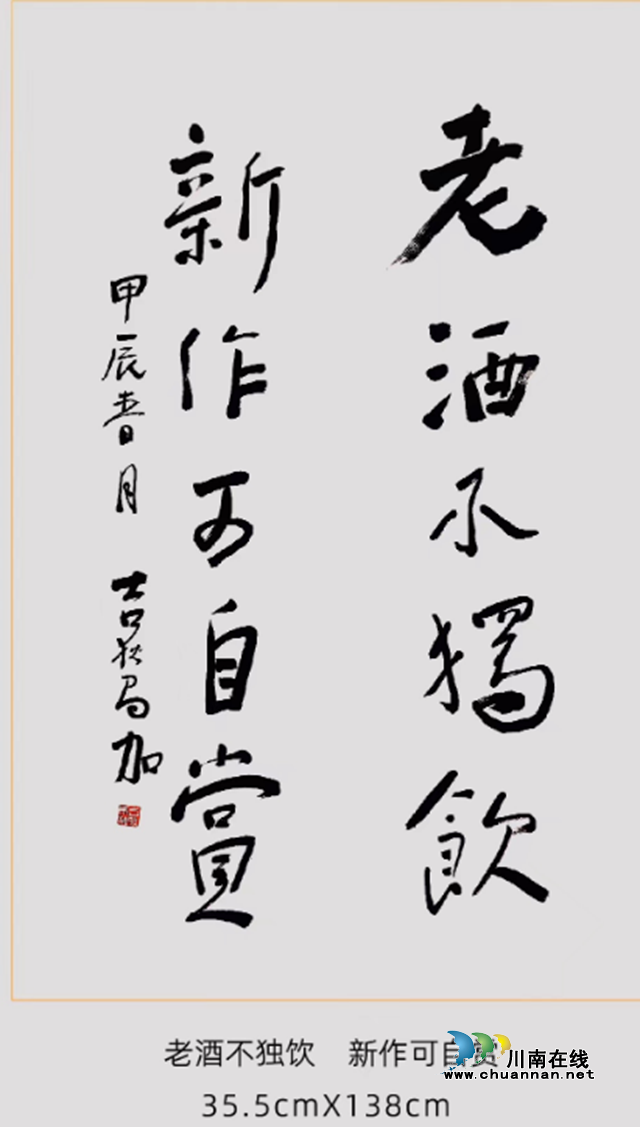 老酒不獨飲
新作可自賞
甲辰春月 吉狄馬加
老酒不独饮 新作可自赏
川南在线
www.chuannan.net
35.5cmX138cm